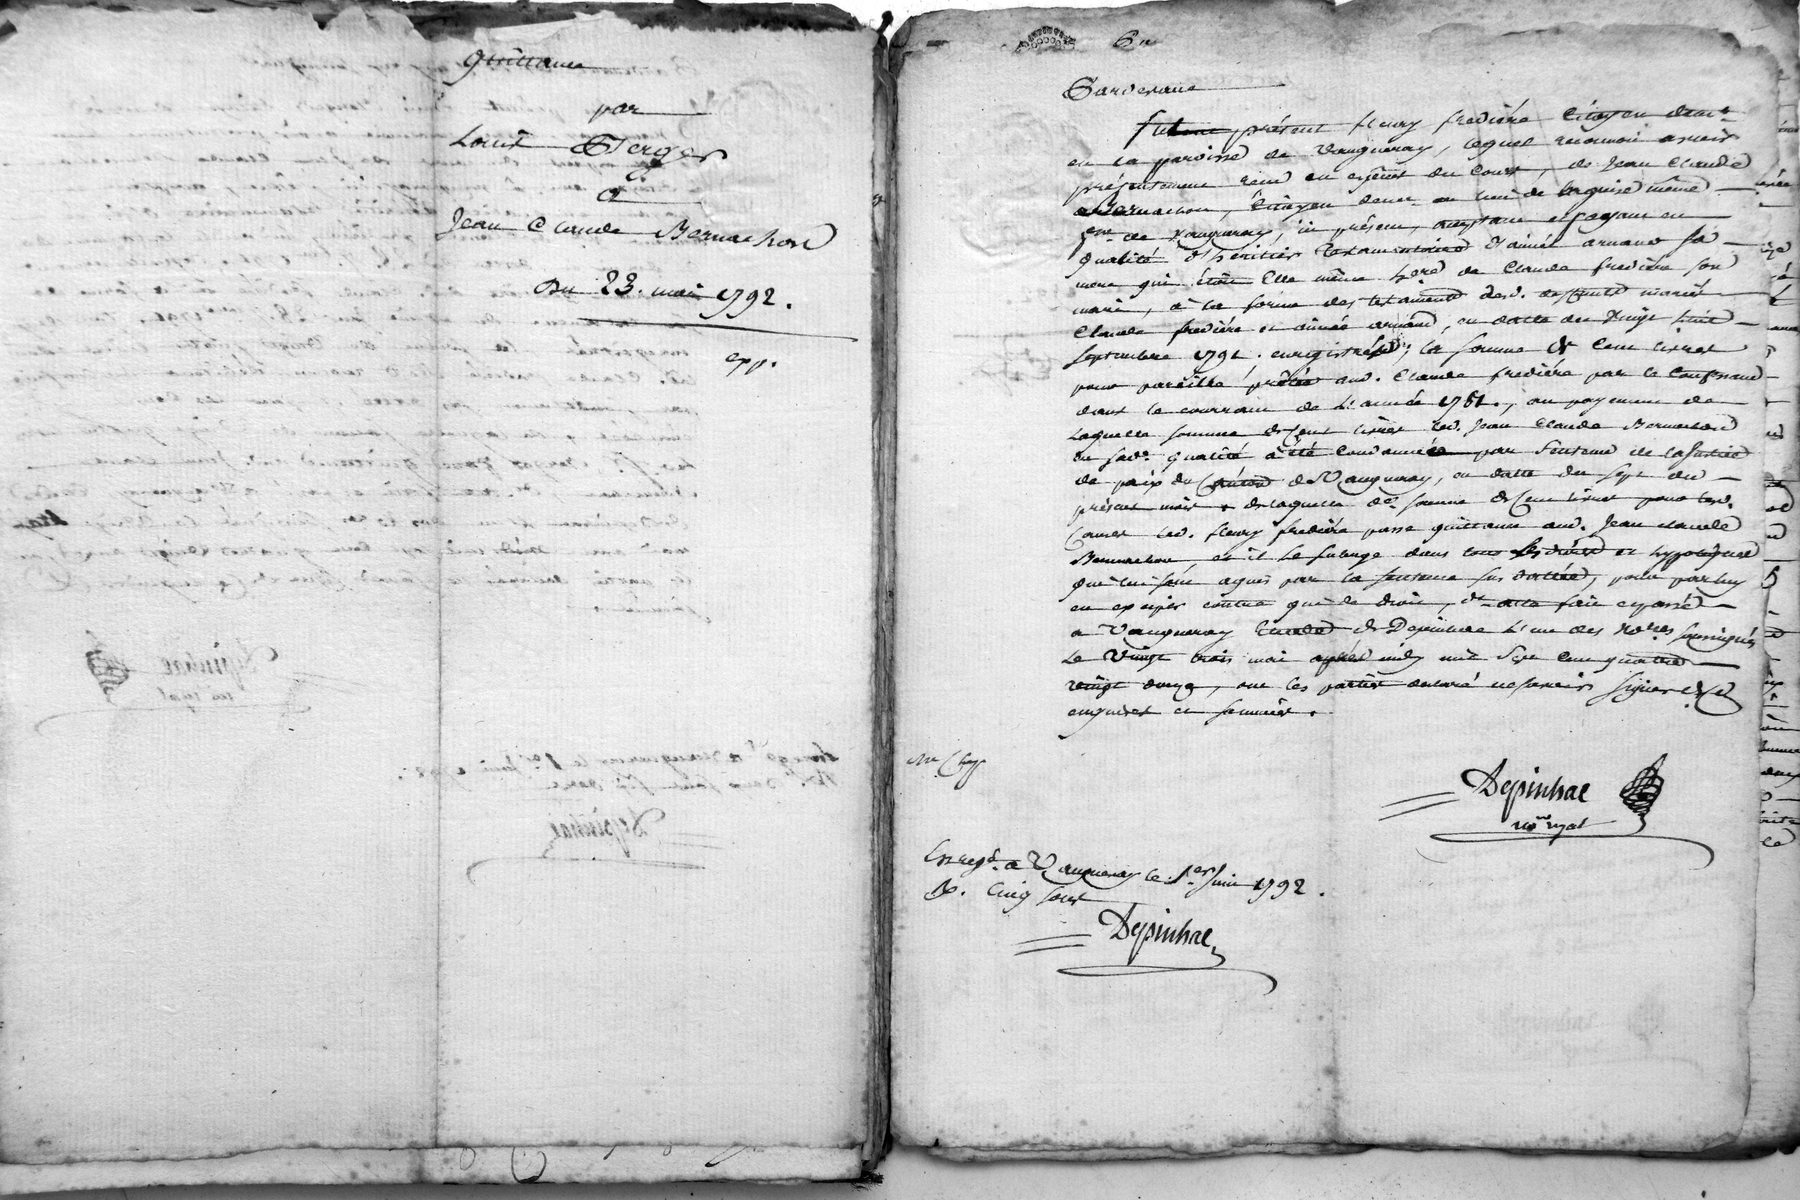 quittance
par
Louis Berger
à
Jean Claude Bernachon
du 23. mai 1792.
exp.
Pardevant
fut présent fleury fredière Citoyen demt
en la paroisse de Vaugneray, lequel reconnoit avoir
présentement reçu en espèces du Cours, de Jean Claude
Bernachon, Citoyen demt au lieu de
de Vaugneray, ici présent, acceptant et payant en
qualité d'héritier testamentaire d'aimée arnaud sa
mere qui étoit Elle même de Claude fredière son
mari, à la forme des testaments desd. mariés
Claude fredière et aimée arnaud, en datte du Vingt huit
septembre 1791. enregistrés, la somme de Cent livres
pour pareille prêtée aud. Claude fredière par le Confessant
dans le courrant de L'année 1781., au payement de
laquelle somme de Cent livres led. Jean Claude Bernachon
en sade. qualité a été Condamné par Sentence de la justice
de paix du Canton de Vaugneray, en datte du sept du
présent mois, de laquelle de. somme de Cent livres pour lesd.
Causes led. fleury fredière passe quittance aud. Jean claude
Bernachon, et il le subroge dans tous les droits et hypotèques
qui lui sont aquis par la sentence sus dattée, pour par luy
en exciper contre qui de droit, dt acte fait et passé
à Vaugneray Etude de Depinhac L'un des nores soussignés
Le Vingt trois mai après midy mil Sept Cent quatre
vingt douze, que les parties declaré ne savoir signer de ce
enquises et sommées.
Depinhac
nore royal
Enregé. à Vaugneray le 1er Juin 1792.
R. Cinq sous
Depinhac